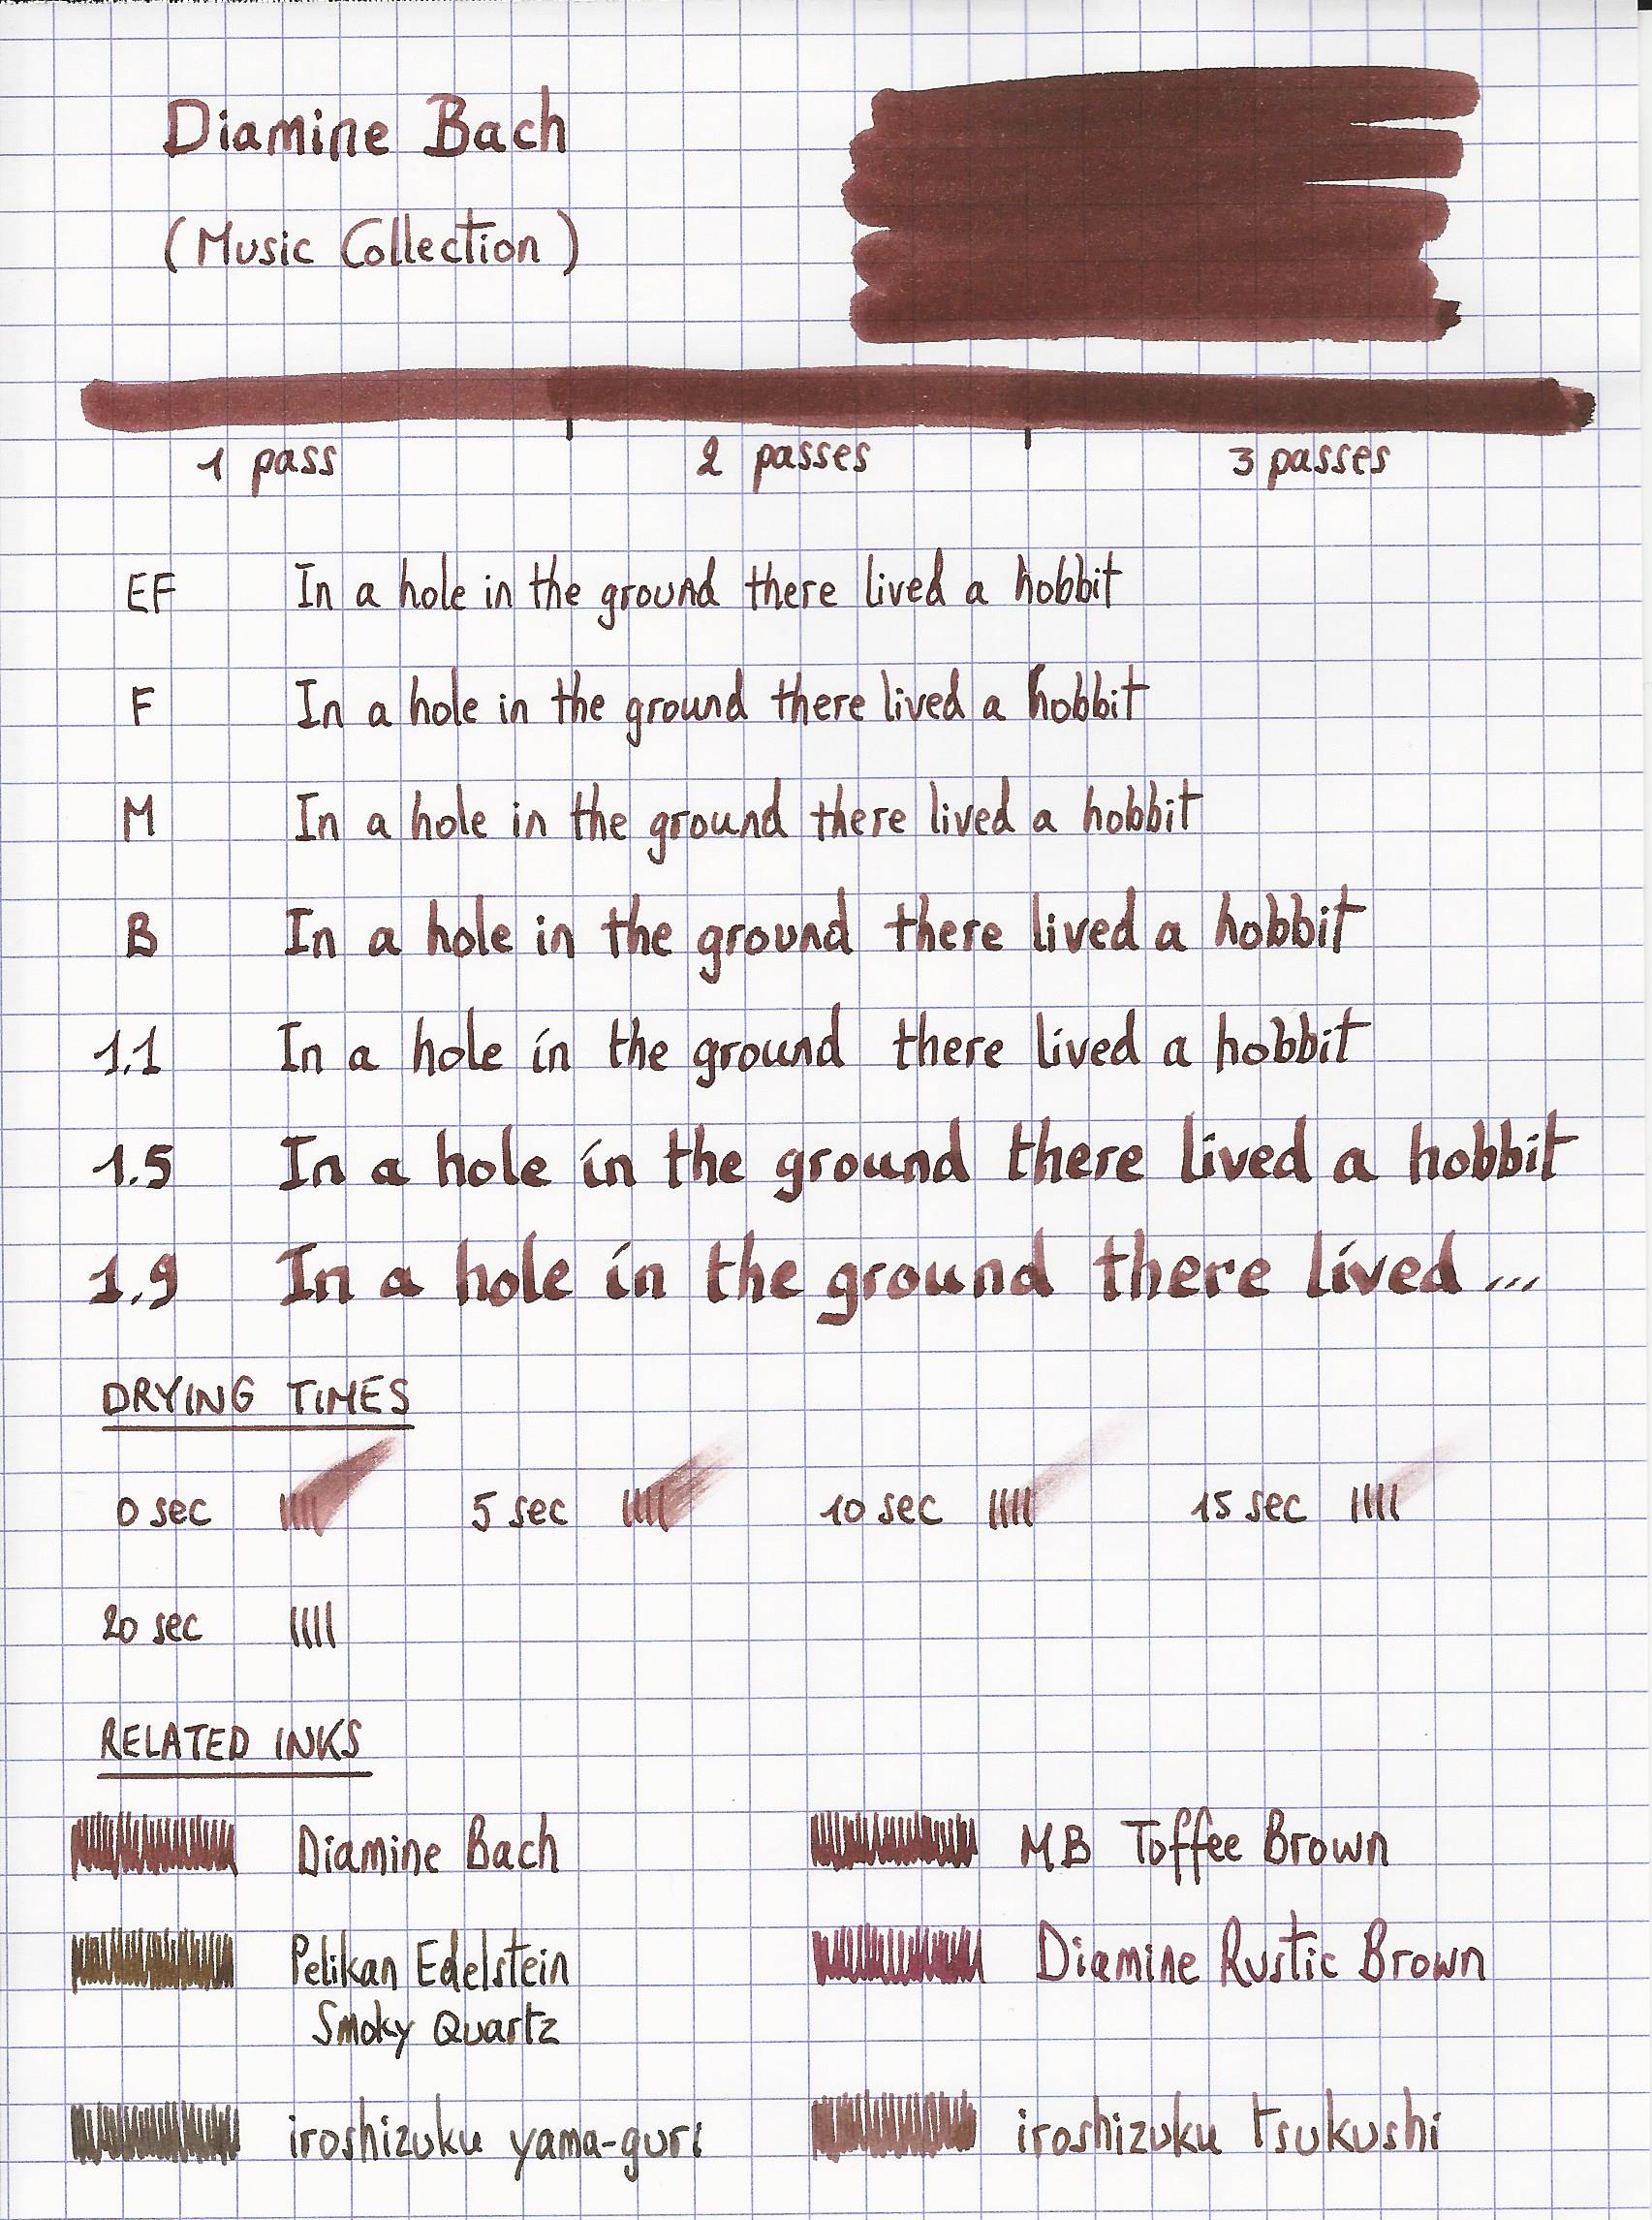 Diamine Bach
(Music Collection)
1 pass 2 passes 3 passes
EF In a hole in the ground there lived a hobbit
F In a hole in the ground there lived a hobbit
M In a hole in the ground there lived a hobbit
B In a hole in the ground there lived a hobbit
1.1 In a hole in the ground there lived a hobbit
1.5 In a hole in the ground there lived a hobbit
1.9 In a hole in the ground there lived ...
DRYING TIMES
0 sec 5 sec 10 sec 15 sec
20 sec
RELATED INKS
Diamine Bach MB Toffee Brown
Pelikan Edelstein Diamine Rustic Brown
Smoky Quartz
iroshizuku yama-guri iroshizuku tsukushi